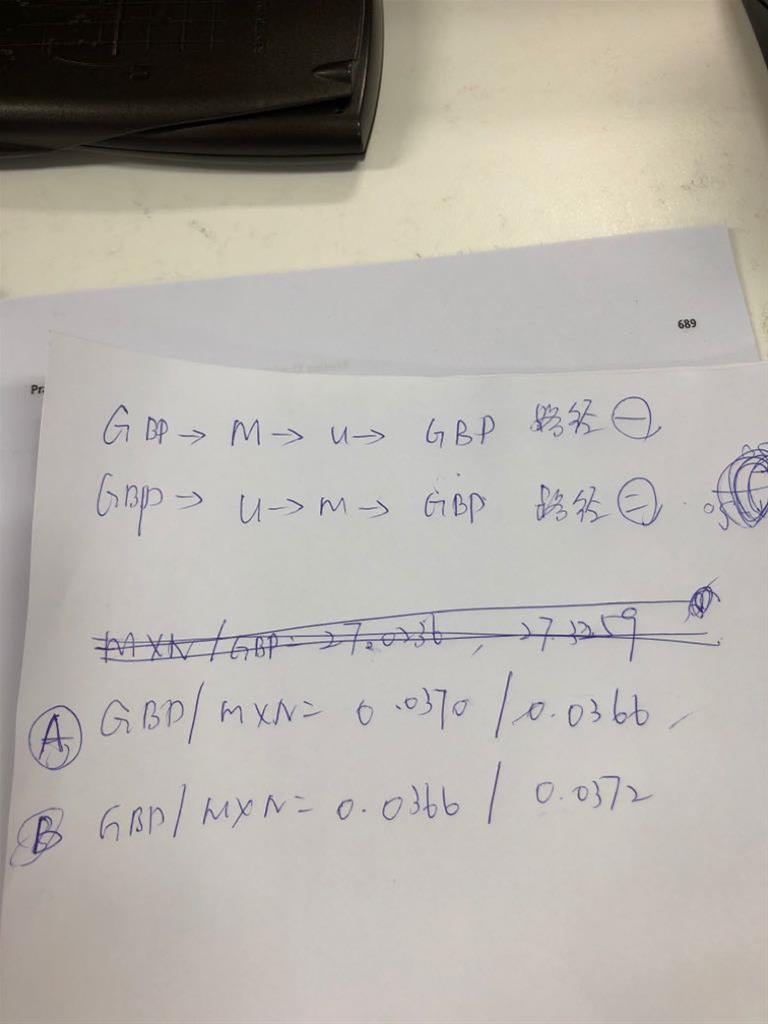 689
Pr
GBP → M → U → GBP 路径㊀
GBP → U → M → GBP 路径㊁
MXN / GBP = 27.0256, 27.3259
Ⓐ GBP / MXN = 0.0370 / 0.0366
Ⓑ GBP / MXN = 0.0366 / 0.0372